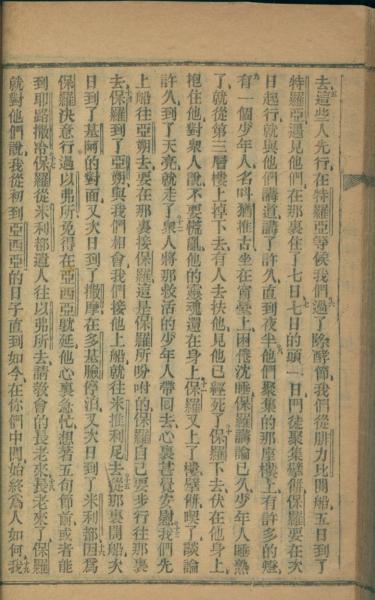 去這些人先行在特羅亞等候我們過了除酵節我們從腓力比開船五日到了
特羅亞遇見他們在那裏住了七日七日的頭一日門徒聚集擘餅保羅要在次
日起行就與他們講道講了許久直到夜半他們聚集的那座樓上有許多的燈
有一個少年人名叫猶推古坐在窗臺上困倦沈睡保羅講論已久少年人睡熟
了就從第三層樓上掉下去有人去扶他見他已經死了保羅下去伏在他身上
抱住他對衆人說不要慌亂他的靈魂還在身上保羅又上了樓擘餅喫了談論
許久到了天亮就走了衆人將那救活的少年人帶回去心裏甚覺安慰我們先
上船往亞朔去要在那裏接保羅這是保羅所吩咐的保羅自己要步行往那裏
去保羅到了亞朔與我們相會我們接他上船就往米推利尼去從那裏開船次
日到了基阿的對面又次日到了撒摩在多基臉停泊又次日到了米利都因爲
保羅決意行過以弗所免得在亞西亞躭延他心裏急忙想著五旬節前或者能
到耶路撒冷保羅從米利都遣人往以弗所去請敎會的長老來長老來了保羅
就對他們說我從初到亞西亞的日子直到如今在你們中間始終爲人如何我